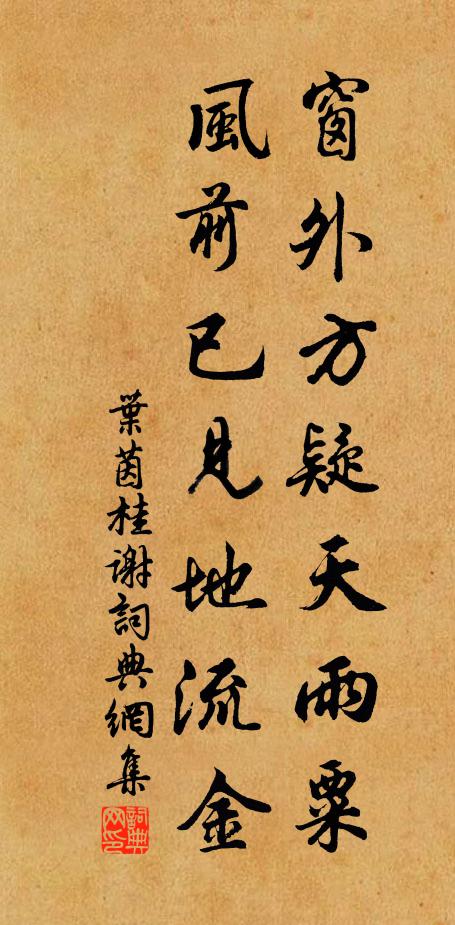 窗外方疑天雨粟
風前已見地流金
葉茵桂謝詞典網集
詞典網印